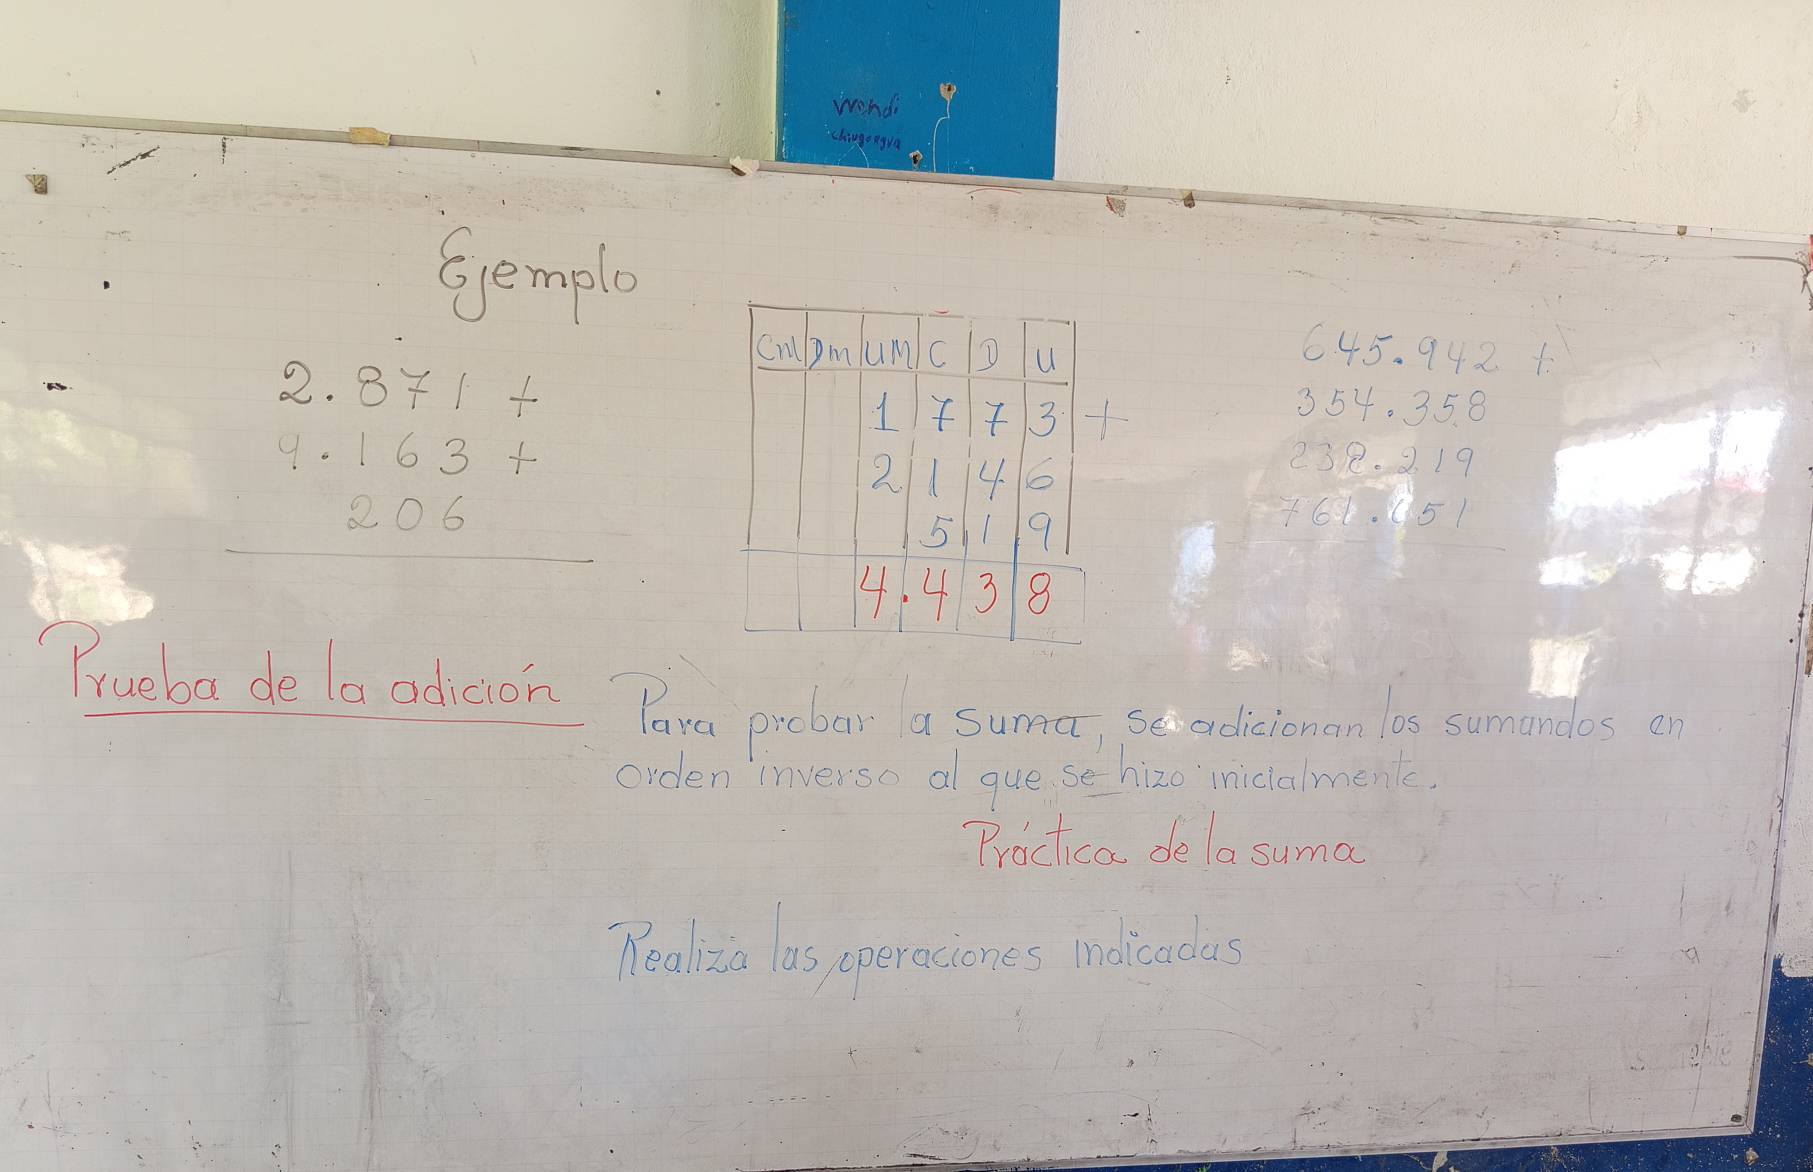 Wendi
Ejemplo
2.871 +
9.163 +
206
Cm Dm UM C D U
1 7 7 3 +
2 1 4 6
5 1 9
4.4 3 8
645.942 +
354.358
238.219
761.651
Prueba de la adición
Para probar la suma, se adicionan los sumandos en
orden inverso al que se hizo inicialmente.
Práctica de la suma
Realiza las operaciones indicadas